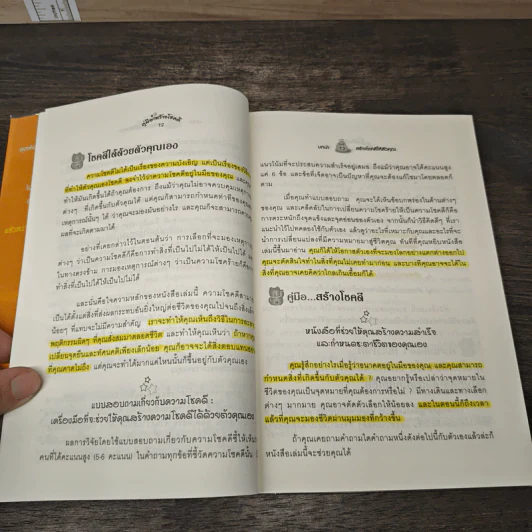 คู่มือสร้างโชคดี
12
โชคดีได้ด้วยตัวคุณเอง
ความโชคดีไม่ได้เป็นเรื่องของความบังเอิญ แต่เป็นเรื่องของ
ที่ทำให้ตัวคุณเองโชคดี
ทำให้มันเกิดขึ้นได้ถ้าคุณต้องการ ถึงแม้ว่าคุณไม่อาจควบคุมเหตุการณ์
ต่างๆ ที่เกิดขึ้นกับตัวคุณได้ แต่คุณก็สามารถกำหนดท่าทีของคุณ
เหตุการณ์นั้นๆ ได้ ว่าคุณจะมองมันอย่างไร และคุณก็จะสามารถ
ผลที่จะเกิดตามมาได้
อย่างที่เคยกล่าวไว้ในตอนต้นว่า การเลือกที่จะมองเหตุ
ต่างๆ ว่าเป็นความโชคดีก็คือการทำสิ่งที่เป็นไปไม่ได้ให้เป็นไปได้
ในทางตรงข้าม การมองเหตุการณ์ต่างๆ ว่าเป็นความโชคร้ายก็คือการ
ทำสิ่งที่เป็นไปได้ให้เป็นไปไม่ได้
และนั่นคือใจความหลักของหนังสือเล่มนี้ ความโชคดีสามารถ
เป็นได้ตั้งแต่สิ่งที่ส่งผลกระทบอันยิ่งใหญ่ต่อชีวิตของคุณไปจนถึงสิ่ง
น้อยๆ ที่แทบจะไม่มีความสำคัญ เราจะทำให้คุณเห็นถึงวิธีในการ
พฤติกรรมผิดๆ ที่คุณสั่งสมมาตลอดชีวิต และทำให้คุณเห็นว่า ถ้าหาก
เปลี่ยนจุดยืนและทัศนคติเพียงเล็กน้อย คุณก็อาจจะได้สิ่งตอบแทน
ที่คุณคาดไม่ถึง แต่คุณจะทำได้มากแค่ไหนนั้นก็ขึ้นอยู่กับตัวคุณเอง
แบบสอบถามเกี่ยวกับความโชคดี :
เครื่องมือที่จะช่วยให้คุณสร้างความโชคดีได้ด้วยตัวคุณเอง
ผลการวิจัยโดยใช้แบบสอบถามเกี่ยวกับความโชคดีชี้ให้เห็น
คนที่ได้คะแนนสูง (5-6 คะแนน) ในคำถามทุกข้อที่ชีวิตความโชคดีนั้น
บทนำ
13
พลิกผันโชคดีที่ตัวคุณ
แนวโน้มที่จะประสบความสำเร็จอยู่เสมอ ถึงแม้ว่าคุณอาจได้คะแนนสูง
แค่ 6 ข้อ และข้อที่เจ็ดอาจเป็นปัญหาที่คุณจะต้องแก้ไขมาโดยตลอดก็
ตาม
เมื่อคุณทำแบบสอบถาม คุณจะได้เห็นข้อบกพร่องในด้านต่างๆ
ของคุณ และเคล็ดลับในการเปลี่ยนความโชคร้ายให้เป็นความโชคดีก็คือ
การตระหนักถึงจุดแข็งและจุดอ่อนของตัวเอง จากนั้นก็นำวิธีคิดดีๆ ที่เรา
แนะนำไว้ไปทดลองใช้กับตัวเอง แล้วดูว่าอะไรที่เหมาะกับคุณและอะไรที่จะ
นำการเปลี่ยนแปลงที่มีความหมายมาสู่ชีวิตคุณ ทันทีที่คุณหยิบหนังสือ
เล่มนี้ขึ้นมาอ่าน คุณก็ได้ให้โอกาสตัวเองที่จะมองโลกอย่างแตกต่างออกไป
คุณจะตัดสินใจทำในสิ่งที่คุณไม่เคยทำมาก่อน และบางทีคุณอาจจะได้ใน
สิ่งที่คุณอาจเคยคิดว่าไกลเกินเอื้อมก็ได้
คู่มือ...สร้างโชคดี
หนังสือที่ช่วยให้คุณสร้างความสำเร็จ
และกำหนดชะตาชีวิตของคุณเอง
คุณรู้สึกอย่างไรเมื่อรู้ว่าอนาคตอยู่ในมือของคุณ และคุณสามารถ
กำหนดสิ่งที่เกิดขึ้นกับตัวคุณได้ ? คุณอยากรู้หรือเปล่าว่าจุดหมายใน
ชีวิตของคุณเป็นจุดหมายที่คุณต้องการหรือไม่ ? มีทางเดินและทางเลือก
ต่างๆ มากมาย คุณอาจตัดตัวเลือกให้น้อยลง และในตอนนี้ก็ถึงเวลา
แล้วที่คุณจะมองชีวิตผ่านมุมมองที่กว้างขึ้น
ถ้าคุณเคยถามคำถามใดคำถามหนึ่งดังต่อไปนี้กับตัวเองแล้วล่ะก็
หนังสือเล่มนี้จะช่วยคุณได้